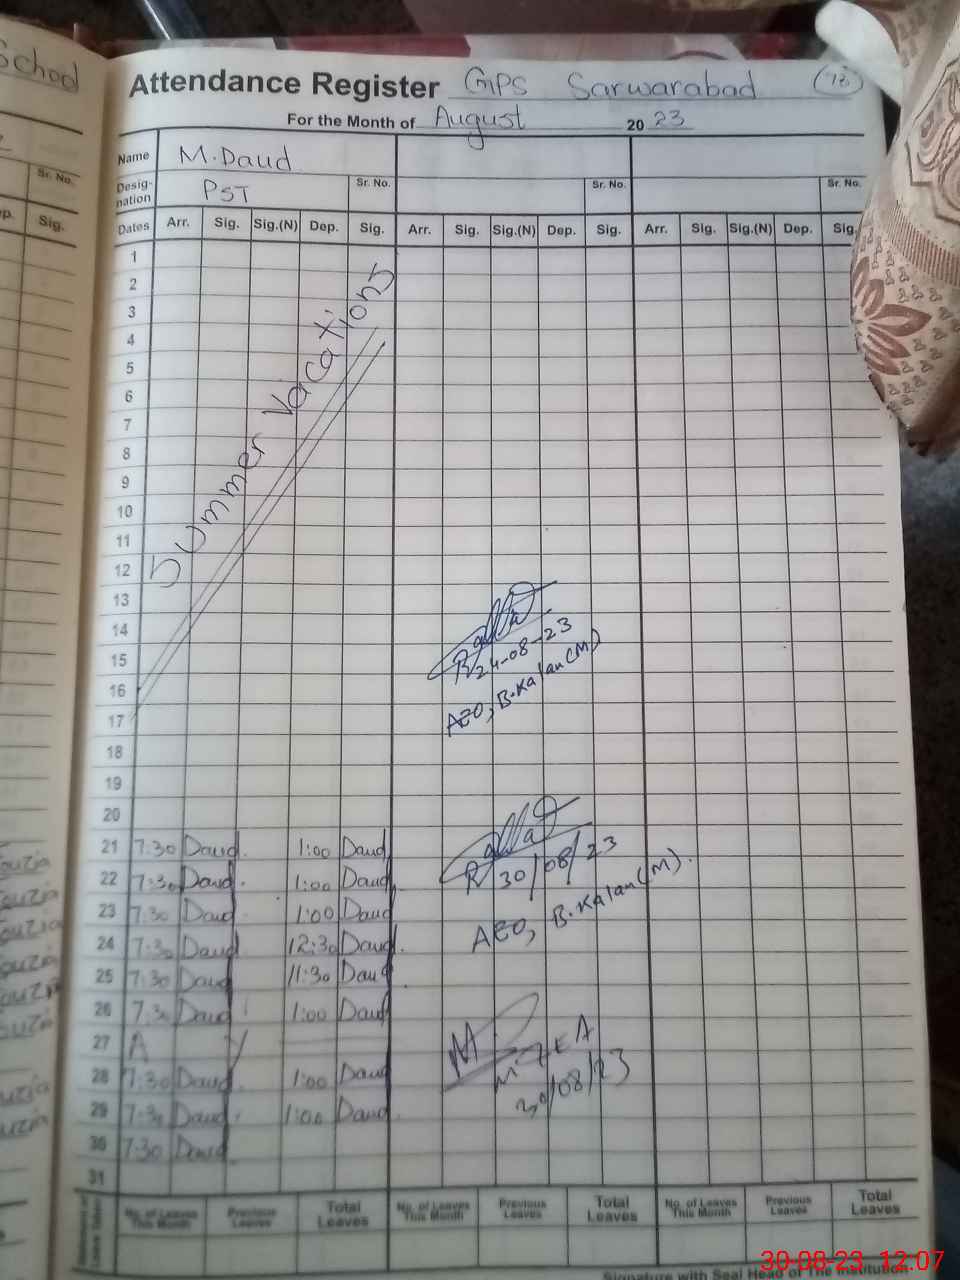 School
Attendance Register GMPS Sarwarabad (12)
For the Month of August 2023
Name M. Daud
Desig-nation PST Sr. No. Sr. No. Sr. No.
Sr. No.
Dates Arr. Sig. Sig.(N) Dep. Sig. Arr. Sig. Sig.(N) Dep. Sig. Arr. Sig. Sig.(N) Dep. Sig.
Sig.
1
2
3
4
5
6
7
8
9
10
11
12
Summer Vacations
13
14
24-08-23
15
16
AEO, B.Kalan(M)
17
18
19
20
21 7:30 Daud 1:00 Daud
30/08/23
22 7:30 Daud. 1:00 Daud
23 7:30 Daud 1:00 Daud
AEO, B.Kalan(M).
24 7:30 Daud 12:30 Daud.
25 7:30 Daud 11:30 Daud
26 7:30 Daud 1:00 Daud
27 A
MEA
28 7:30 Daud. 1:00 Daud
30/08/23
29 7:30 Daud 1:00 Daud
30 7:30 Daud
31
No. of Leaves This Month Previous Leaves Total Leaves No. of Leaves This Month Previous Leaves Total Leaves No. of Leaves This Month Previous Leaves Total Leaves
30-08-23 12:07
Signature with Seal Head of The Institution